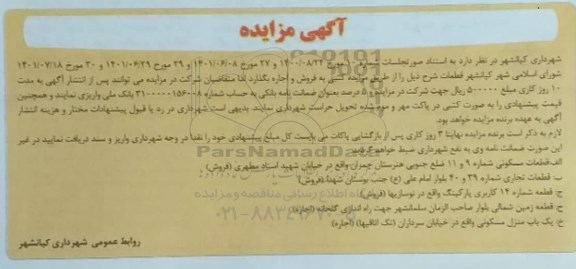 آگهی مزایده
شهرداری کیانشهر در نظر دارد به استناد صورتجلسات شماره مورخ ۱۴۰۰/۰۸/۲۳ و ۲۷ مورخ ۱۴۰۱/۰۶/۰۸ و ۲۹ مورخ ۱۴۰۱/۰۶/۲۹ و ۳۰ مورخ ۱۴۰۱/۰۷/۱۸
شورای اسلامی شهر کیانشهر قطعات شرح ذیل را از طریق مزایده کتبی به فروش و اجاره بگذارد لذا متقاضیان شرکت در مزایده می توانند پس از انتشار آگهی به مدت
۱۰ روز کاری مبلغ ۵۰۰۰۰۰ ریال جهت شرکت در مزایده و ۵ درصد بعنوان ضمانت نامه بانکی به حساب شماره بانک ملی واریزی نمایند و همچنین
قیمت پیشنهادی را به صورت کتبی در پاکت مهر و موم شده تحویل حراست شهرداری نمایند. بدیهی است شهرداری در رد یا قبول پیشنهادات مختار و هزینه انتشار
آگهی به عهده برنده مزایده خواهد بود.
لازم به ذکر است برنده مزایده نهایتا ۳ روز کاری پس از بازگشایی پاکات می بایست کل مبلغ پیشنهادی خود را نقدا در وجه شهرداری واریز و سند دریافت نمایید در غیر
این صورت ضمانت نامه وی به نفع شهرداری ضبط خواهد گردید.
الف-قطعات مسکونی شماره ۹ و ۱۱ ضلع جنوبی هنرستان چمران واقع در خیابان شهید استاد مطهری (فروش)
ب- قطعات تجاری شماره ۳۹ و ۴۰ بلوار امام علی (ع) جنب بوستان شهدا (فروش)
ج- قطعه شماره ۱۴ کاربری پارکینگ واقع در نوسازیها (فروش)
ح- قطعه زمین شمالی بلوار صاحب الزمان سلمانشهر جهت راه اندازی گلخانه (اجاره)
خ- یک باب منزل مسکونی واقع در خیابان سرداران (تک اتاقیها) (اجاره)
روابط عمومی شهرداری کیانشهر
ParsNamadData